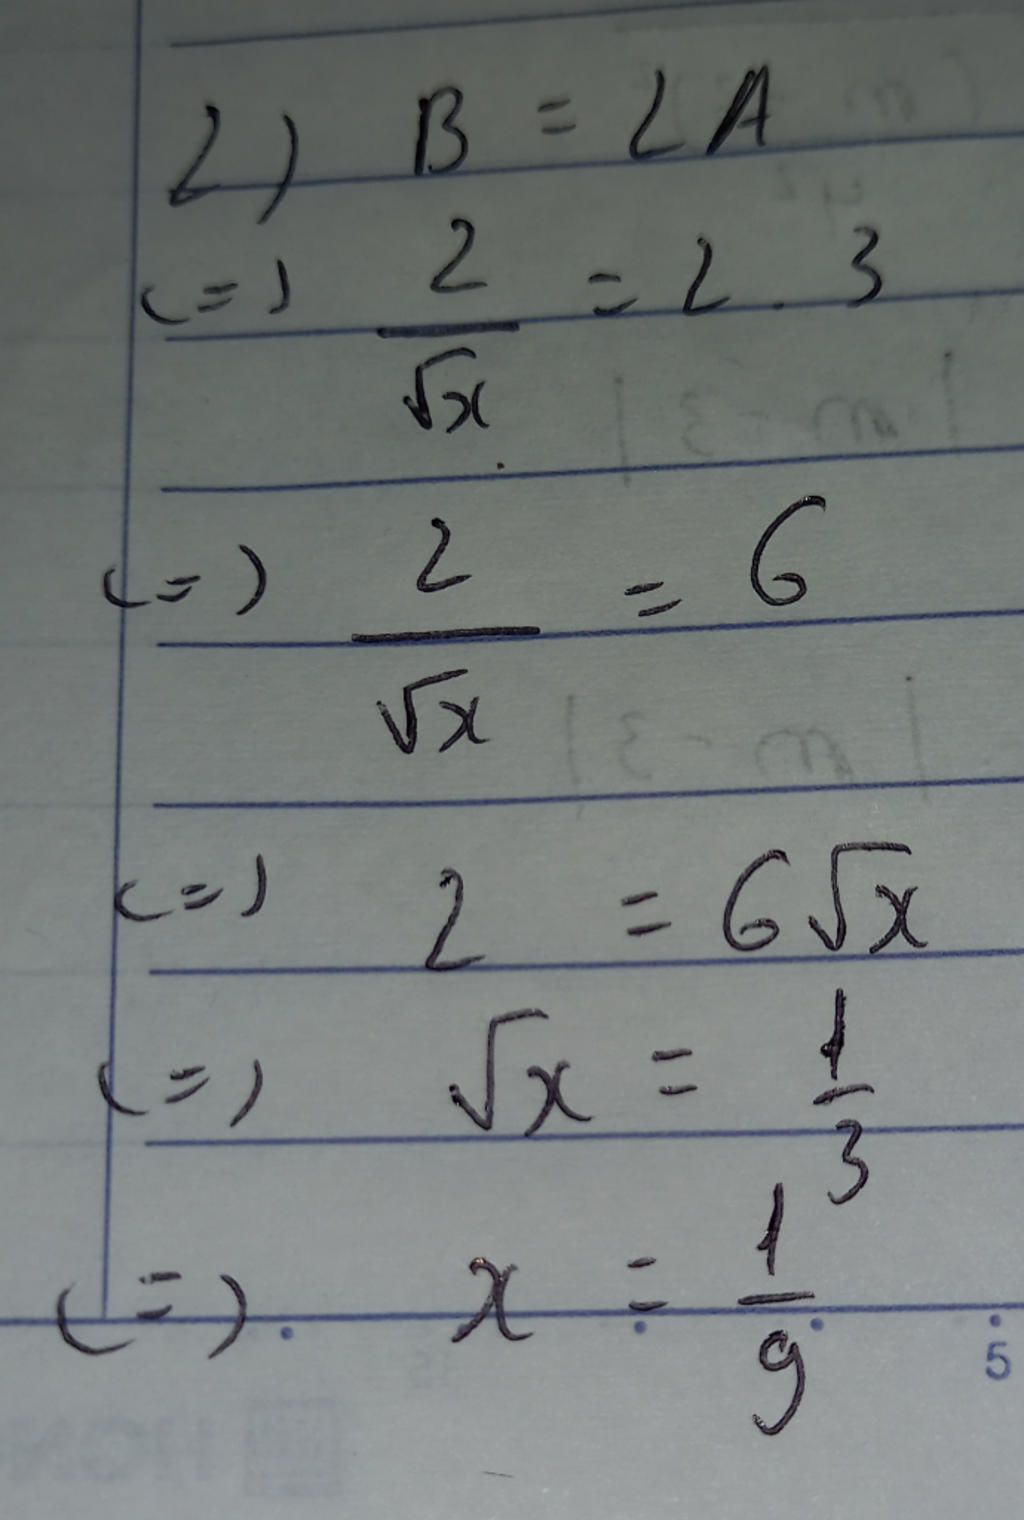 2) B = 2A
(=) 2/√x = 2 . 3
(=) 2/√x = 6
(=) 2 = 6√x
(=) √x = 1/3
(=) x = 1/9
5